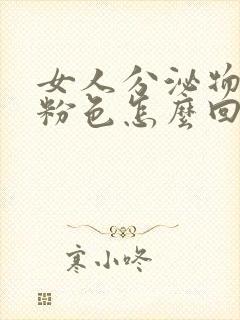 女人分泌物
粉色怎麼回
寒小咚